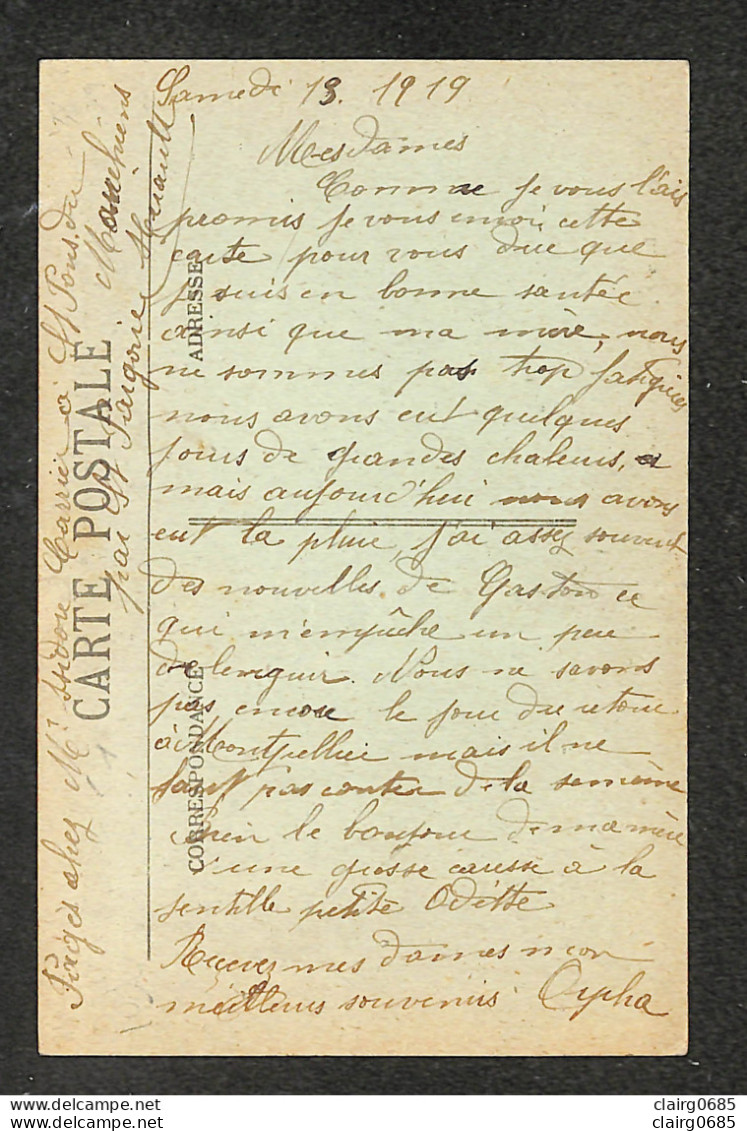 Samedi 13. 1919
Mesdames
Comme je vous l'ais
promis je vous envoi cette
carte pour vous dire que
je suis en bonne santée
ainsi que ma mère, nous
ne sommes pas trop fatiguées
nous avons eut quelques
jours de grandes chaleurs,
mais aujourd'hui nous avons
eut la pluie, j'ai assez souvent
des nouvelles de Gaston ce
qui m'empêche un peu
de languir. Nous ne savons
pas encore le jour du retour
à Montpellier mais il ne
faut pas conter de la semaine
bien le bonjour de ma mère
d'une grosse caresse à la
gentille petite Odette
Recevez mesdames mon
meilleurs souvenirs Orpha
Pagès chez Mr Isidore Carrier à St Pons du
Mauchiens
par St Pargoire Hérault
CARTE POSTALE
CORRESPONDANCE
ADRESSE
delcampe.net
delcampe.net
clairg0685
clairg0685